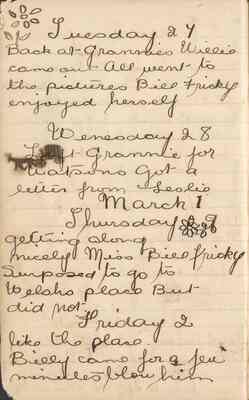 Tuesday 27
Back at Grannies Willie
came out All went to
the pictures Bill Fricky
enjoyed herself
Wenesday 28
Left Grannie for
Watsons Got a
letter from Leslie
March 1
Thursday
getting along
nicely Miss Bill fricky
Surposed to go to
Welshs place But
did not
Friday 2
like the place.
Billy came for a few
minutes blow him